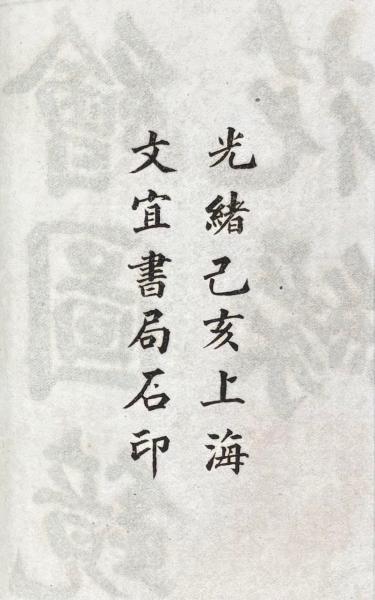 光緒己亥上海
文宜書局石印